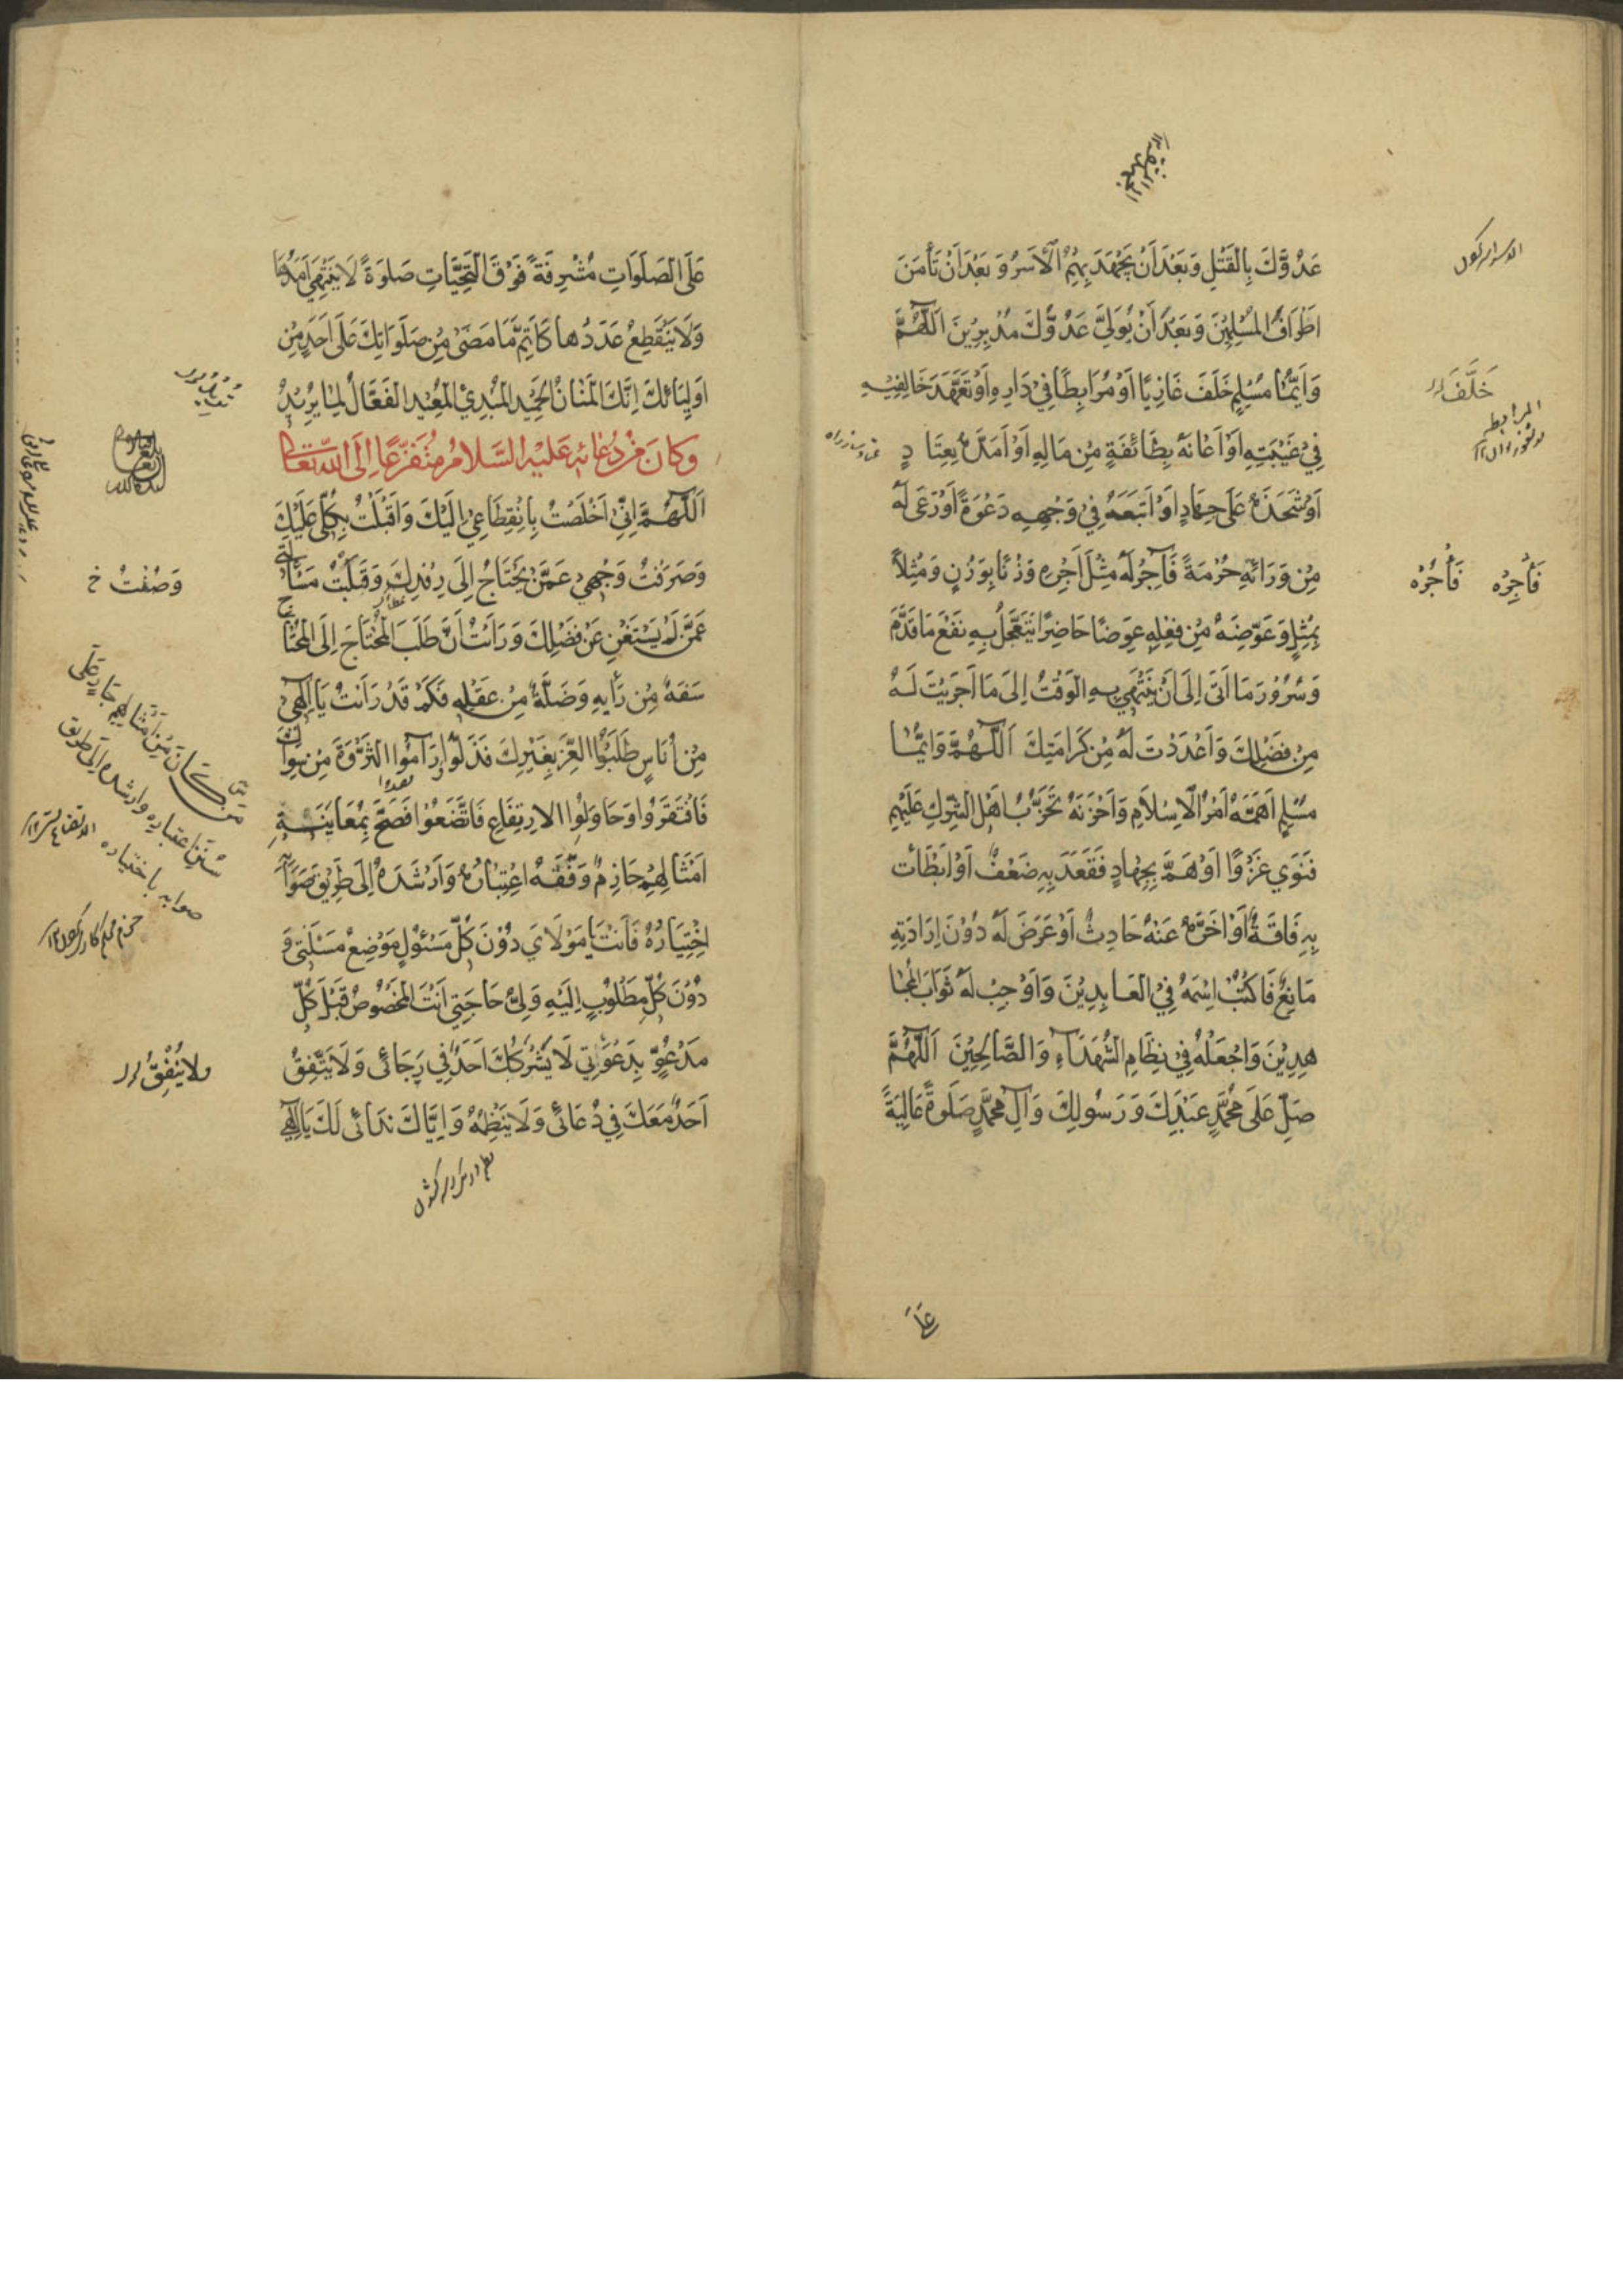 عَدُوَّكَ بِالْقَتْلِ وَبَعْدَ اَنْ يَجْهَدَ بِهِمُ الْاَسْرُ وَبَعْدَ اَنْ تَأْمَنَ
اَطْرَافُ الْمُسْلِمِيْنَ وَبَعْدَ اَنْ يُوَلِّيَ عَدُوُّكَ مُدْبِرِيْنَ اَللّٰهُمَّ
وَاَيُّمَا مُسْلِمٍ خَلَفَ غَازِيًا اَوْ مُرَابِطًا فِيْ دَارِهِ اَوْ تَعَهَّدَ خَالِفِيْهِ
فِيْ غَيْبَتِهِ اَوْ اَعَانَهُ بِطَائِفَةٍ مِنْ مَالِهِ اَوْ اَمَدَّهُ بِعِتَادٍ
اَوْ شَحَذَهُ عَلَى جِهَادٍ اَوْ اَتْبَعَهُ فِيْ وَجْهِهِ دَعْوَةً اَوْ رَعَى لَهُ
مِنْ وَرَائِهِ حُرْمَةً فَآجِرْ لَهُ مِثْلَ اَجْرِهِ وَزْنًا بِوَزْنٍ وَمِثْلًا
بِمِثْلٍ وَعَوِّضْهُ مِنْ فِعْلِهِ عِوَضًا حَاضِرًا يَتَعَجَّلُ بِهِ نَفْعَ مَا قَدَّمَ
وَسُرُوْرَ مَا اَتَى اِلَى اَنْ يَنْتَهِيَ بِهِ الْوَقْتُ اِلَى مَا اَجْرَيْتَ لَهُ
مِنْ فَضْلِكَ وَاَعْدَدْتَ لَهُ مِنْ كَرَامَتِكَ اَللّٰهُمَّ وَاَيُّمَا
مُسْلِمٍ اَهَمَّهُ اَمْرُ الْاِسْلَامِ وَاَحْزَنَهُ تَحَزُّبُ اَهْلِ الشِّرْكِ عَلَيْهِمْ
فَنَوَى غَزْوًا اَوْ هَمَّ بِجِهَادٍ فَقَعَدَ بِهِ ضَعْفٌ اَوْ اَبْطَأَتْ
بِهِ فَاقَةٌ اَوْ اَخَّرَهُ عَنْهُ حَادِثٌ اَوْ عَرَضَ لَهُ دُوْنَ اِرَادَتِهِ
مَانِعٌ فَاكْتُبْ اِسْمَهُ فِيْ الْعَابِدِيْنَ وَاَوْجِبْ لَهُ ثَوَابَ الْمُجَا
هِدِيْنَ وَاجْعَلْهُ فِيْ نِظَامِ الشُّهَدَاءِ وَالصَّالِحِيْنَ اَللّٰهُمَّ
صَلِّ عَلَى مُحَمَّدٍ عَبْدِكَ وَرَسُوْلِكَ وَآلِ مُحَمَّدٍ صَلَوةً عَالِيَةً
خَلَّفَ
المرابط
فَأْجِرْهُ فَأْجُرْهُ
عَلَى
عَلَى الصَّلَوَاتِ مُشْرِفَةً فَوْقَ التَّحِيَّاتِ صَلوَةً لَا يَنْتَهِيْ اَمَدُهَا
وَلَا يَنْقَطِعُ عَدَدُهَا كَاَتَمِّ مَا مَضَى مِنْ صَلَوَاتِكَ عَلَى اَحَدٍ مِنْ
اَوْلِيَائِكَ اِنَّكَ الْمَنَّانُ الْحَمِيْدُ الْمُبْدِئُ الْمُعِيْدُ الْفَعَّالُ لِمَا يُرِيْدُ
وَكَانَ مِنْ دُعَائِهِ عَلَيْهِ السَّلَامُ مُتَفَزِّعًا اِلَى اللّٰهِ تَعَالَى
اَللّٰهُمَّ اِنِّيْ اَخْلَصْتُ بِانْقِطَاعِيْ اِلَيْكَ وَاَقْبَلْتُ بِكُلِّيْ عَلَيْكَ
وَصَرَفْتُ وَجْهِيْ عَمَّنْ يَحْتَاجُ اِلَى رِفْدِكَ وَقَلَبْتُ مَسْأَلَتِيْ
عَمَّنْ لَمْ يَسْتَغْنِ عَنْ فَضْلِكَ وَرَاَيْتُ اَنَّ طَلَبَ الْمُحْتَاجِ اِلَى الْمُحْتَاجِ
سَفَهٌ مِنْ رَأْيِهِ وَضَلَّةٌ مِنْ عَقْلِهِ فَكَمْ قَدْ رَاَيْتُ يَا اِلٰهِيْ
مِنْ اُنَاسٍ طَلَبُوْا الْعِزَّ بِغَيْرِكَ فَذَلُّوْا وَرَامُوْا الثَّرْوَةَ مِنْ سِوَاكَ
فَافْتَقَرُوْا وَحَاوَلُوْا الِارْتِفَاعَ فَاتَّضَعُوْا فَصَحَّ بِمُعَايَنَةِ
اَمْثَالِهِمْ حَازِمٌ وَفَّقَهُ اعْتِبَارُهُ وَاَرْشَدَهُ اِلَى طَرِيْقِ صَوَابِهِ
اِخْتِيَارُهُ فَاَنْتَ يَا مَوْلَايَ دُوْنَ كُلِّ مَسْئُوْلٍ مَوْضِعُ مَسْئَلَتِيْ وَ
دُوْنَ كُلِّ مَطْلُوْبٍ اِلَيْهِ وَلِيُّ حَاجَتِيْ اَنْتَ الْمَخْصُوْصُ قَبْلَ كُلِّ
مَدْعُوٍّ بِدَعْوَتِيْ لَا يَشْرَكُكَ اَحَدٌ فِيْ رَجَائِيْ وَلَا يَتَّفِقُ
اَحَدٌ مَعَكَ فِيْ دُعَائِيْ وَلَا يَنْظِمُهُ وَاِيَّاكَ نِدَائِيْ لَكَ يَا اِلٰهِيْ
وَصُفْتُ خ
ولا يُنْفِقُ